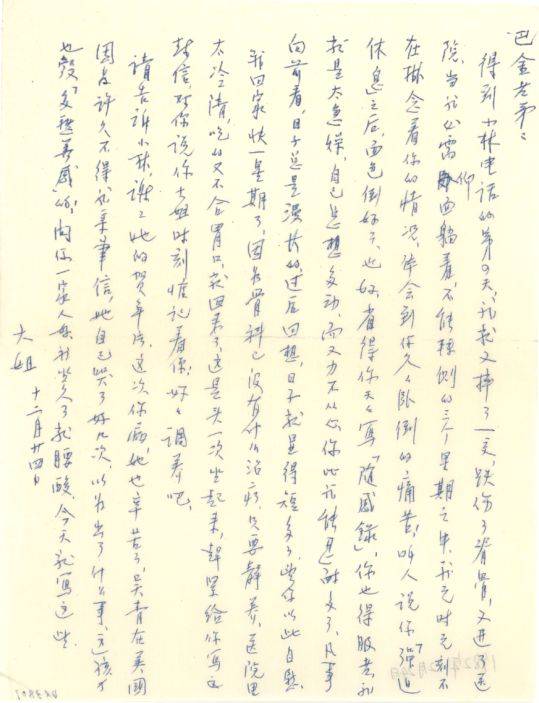 巴金老弟：
得到小林电话的第9天，我就又摔了一交，跌伤了脊骨，又进了医
院，当我必需仰面躺着，不能转侧的三个星期之中，我无时无刻不
在挂念着你的情况，体会到你久久卧倒的痛苦！叫人说你“强迫
休息”之后，面色倒好了，也好，省得你天天写“随感录”，你也得服老，我
就是太急燥，自己思想多动，而又力不从心，你比我能忍耐多了，凡事
向前看，日子总是漫长的，过后回想，日子就显得短多了，望你以此自慰。
我回家快一星期了，因为骨科已没有什么治疗，只要静养，医院里
太冷清，吃的又不合胃口，我回来了，这是头一次坐起来，赶紧给你写这
封信，对你说你大姐时刻惦记着你，好好调养吧。
请告诉小林，谢谢她的贺年片，这次你病，她也辛苦了，吴青在美国
因为许久不得我亲笔信，她自己哭了好几次，以为出了什么事，这孩子
也够“多愁善感”的，问你一家人好，我坐久了就腰酸，今天就写这些。
大姐 十二月廿四日